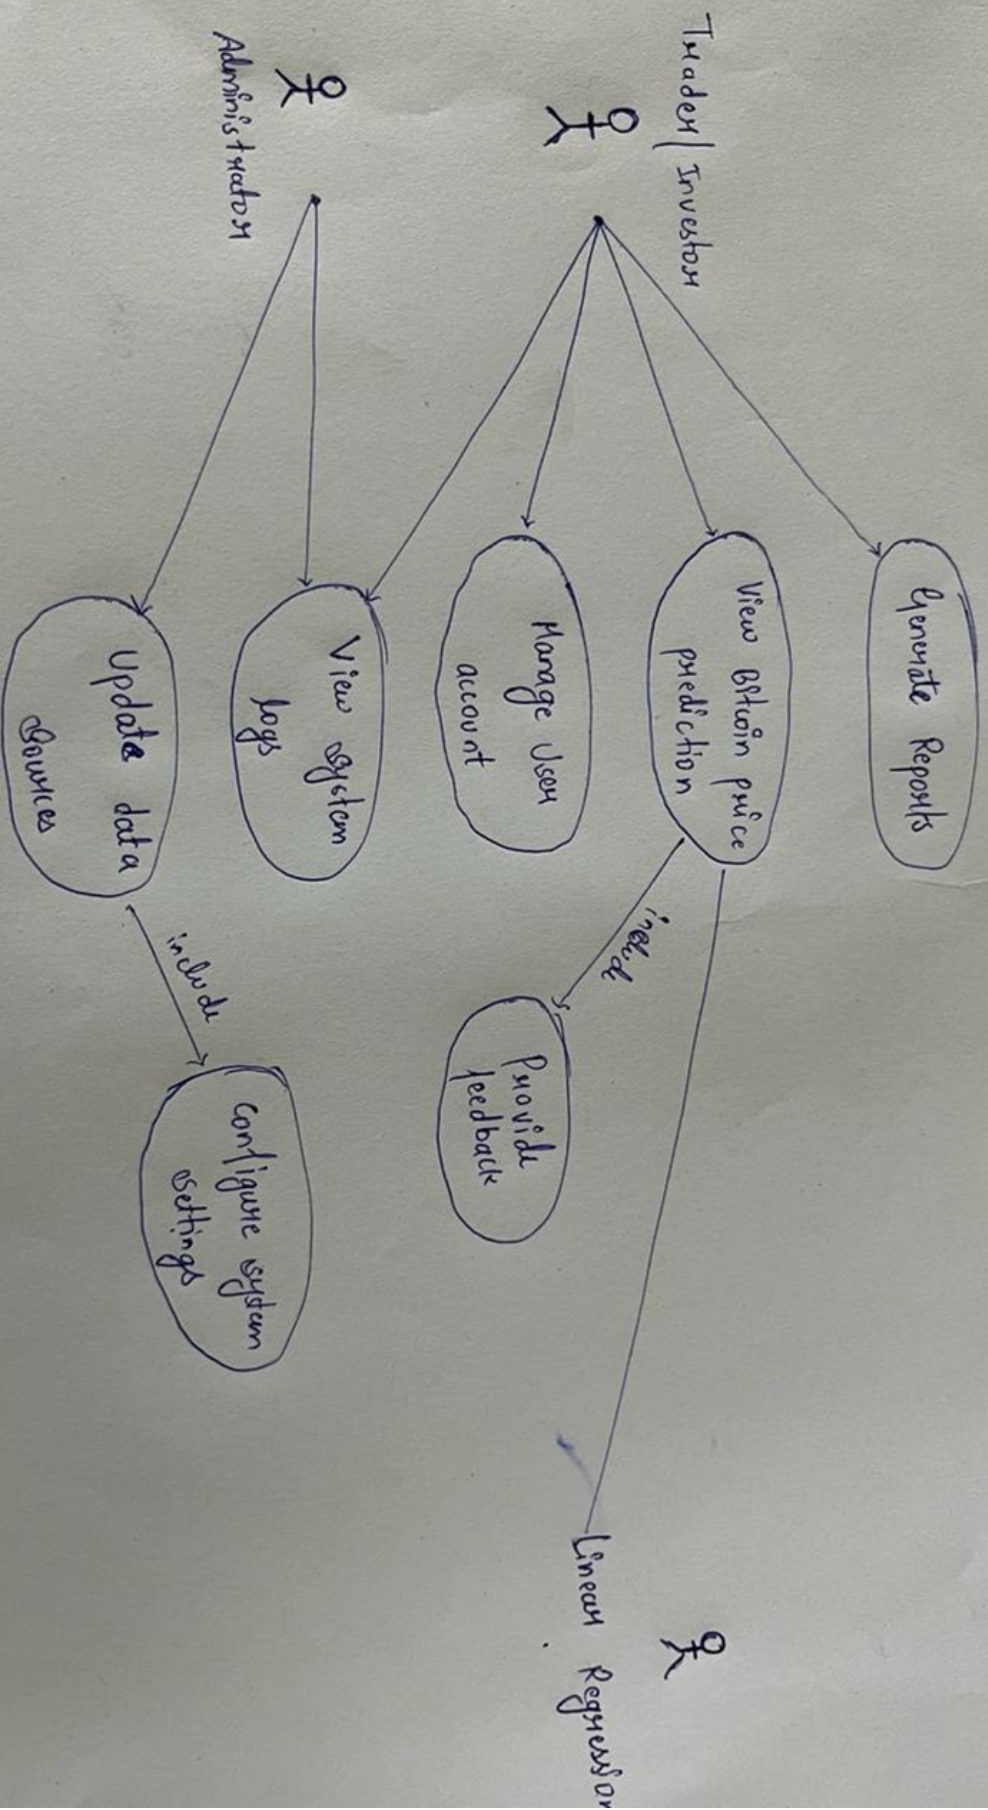 Trader/Investor
Generate Reports
View Bitcoin price
prediction
Manage User
account
View system
logs
Administrator
Update data
Sources
include
Provide
feedback
include
Configure system
settings
Linear Regression